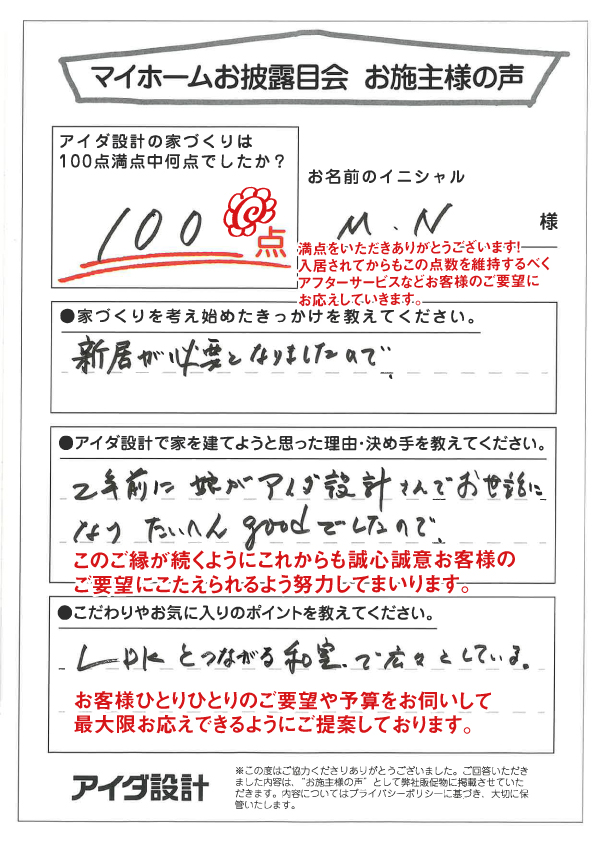 マイホームお披露目会 お施主様の声
アイダ設計の家づくりは
100点満点中何点でしたか？
100点
お名前のイニシャル
M.N 様
満点をいただきありがとうございます!
入居されてからもこの点数を維持するべく
アフターサービスなどお客様のご要望に
お応えしていきます。
●家づくりを考え始めたきっかけを教えてください。
新居が必要となりましたので、
●アイダ設計で家を建てようと思った理由・決め手を教えてください。
2年前に娘がアイダ設計さんでお世話に
なり たいへんgoodでしたので、
このご縁が続くようにこれからも誠心誠意お客様の
ご要望にこたえられるよう努力してまいります。
●こだわりやお気に入りのポイントを教えてください。
LDKとつながる和室、で広々としている。
お客様ひとりひとりのご要望や予算をお伺いして
最大限お応えできるようにご提案しております。
アイダ設計
※この度はご協力くださりありがとうございました。ご回答いただき
ました内容は、“お施主様の声”として弊社販促物に掲載させていた
だきます。内容についてはプライバシーポリシーに基づき、大切に保
管いたします。